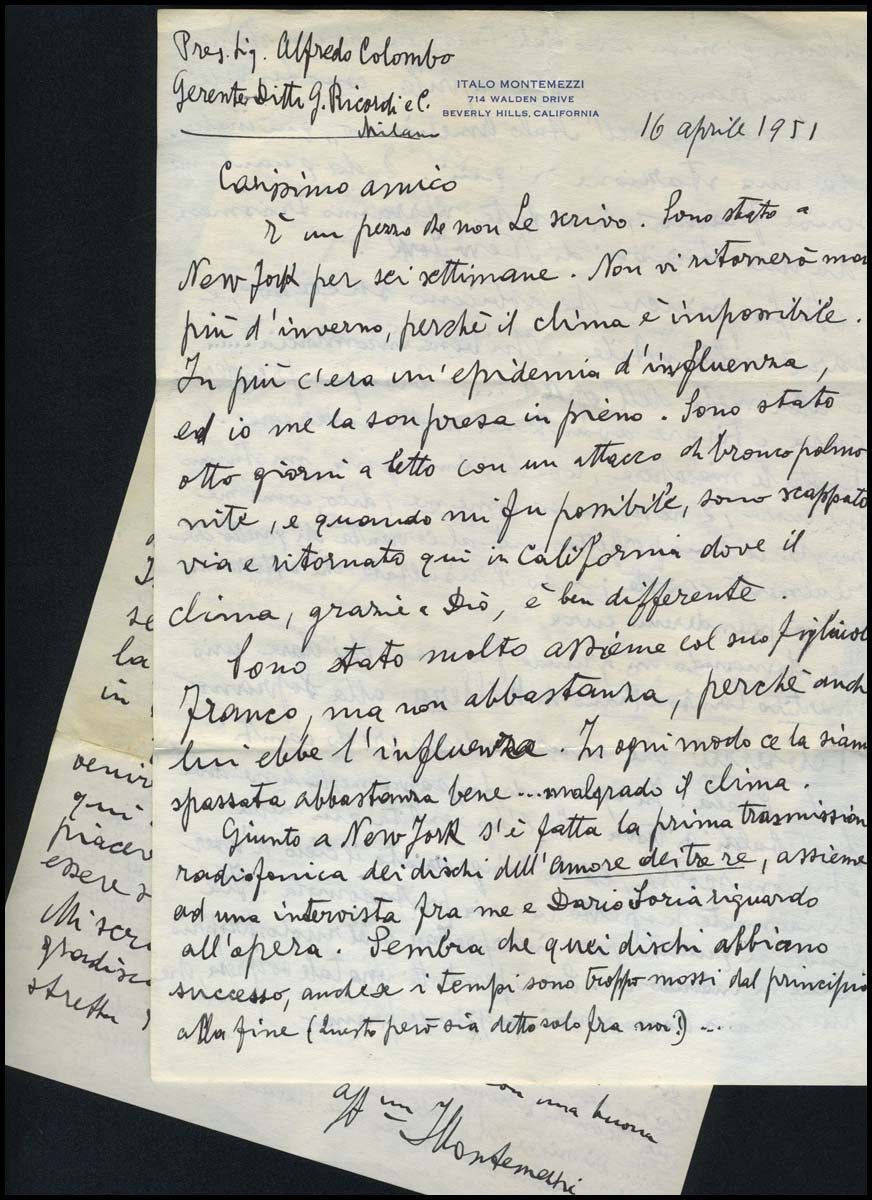 Preg. Sig. Alfredo Colombo
Gerente Ditta G. Ricordi e C.
Milano
ITALO MONTEMEZZI
714 WALDEN DRIVE
BEVERLY HILLS, CALIFORNIA
16 aprile 1951
Carissimo amico
È un pezzo che non Le scrivo. Sono stato a
New York per sei settimane. Non vi ritornerò mai
più d'inverno, perchè il clima è impossibile.
In più c'era un'epidemia d'influenza,
ed io me la son presa in pieno. Sono stato
otto giorni a letto con un attacco di broncopolmo
nite, e quando mi fu possibile, sono scappato
via e ritornato qui in California dove il
clima, grazie a Dio, è ben differente.
Sono stato molto assieme col suo figliuol
Franco, ma non abbastanza, perchè anch
lui ebbe l'influenza. In ogni modo ce la siam
spassata abbastanza bene ... malgrado il clima.
Giunto a New York s'è fatta la prima trasmission
radiofonica dei dischi dell'amore dei tre re, assieme
ad una intervista fra me e Dario Soria riguardo
all'opera. Sembra che quei dischi abbiano
successo, anche se i tempi sono troppo mossi dal principio
alla fine (Questo però sia detto solo fra noi!) ...
se
la
in
veni
qui
piacer
essere s
Mi scri
gradisc
stretta
con una buona
aff mo
IMontemezzi